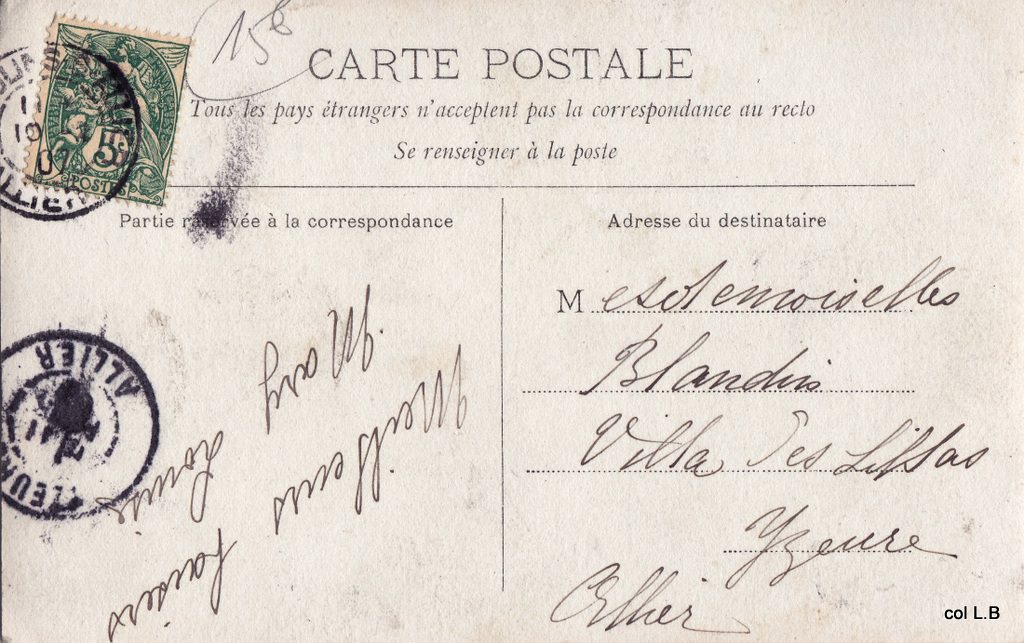 15
CARTE POSTALE
Tous les pays étrangers n'acceptent pas la correspondance au recto
Se renseigner à la poste
5c
POSTES
Partie réservée à la correspondance
Adresse du destinataire
Mesdemoiselles
Blandin
Villa des Lillas
Yzeure
Allier
Meilleurs baisers
Mary Louise
ALLIER
col L.B